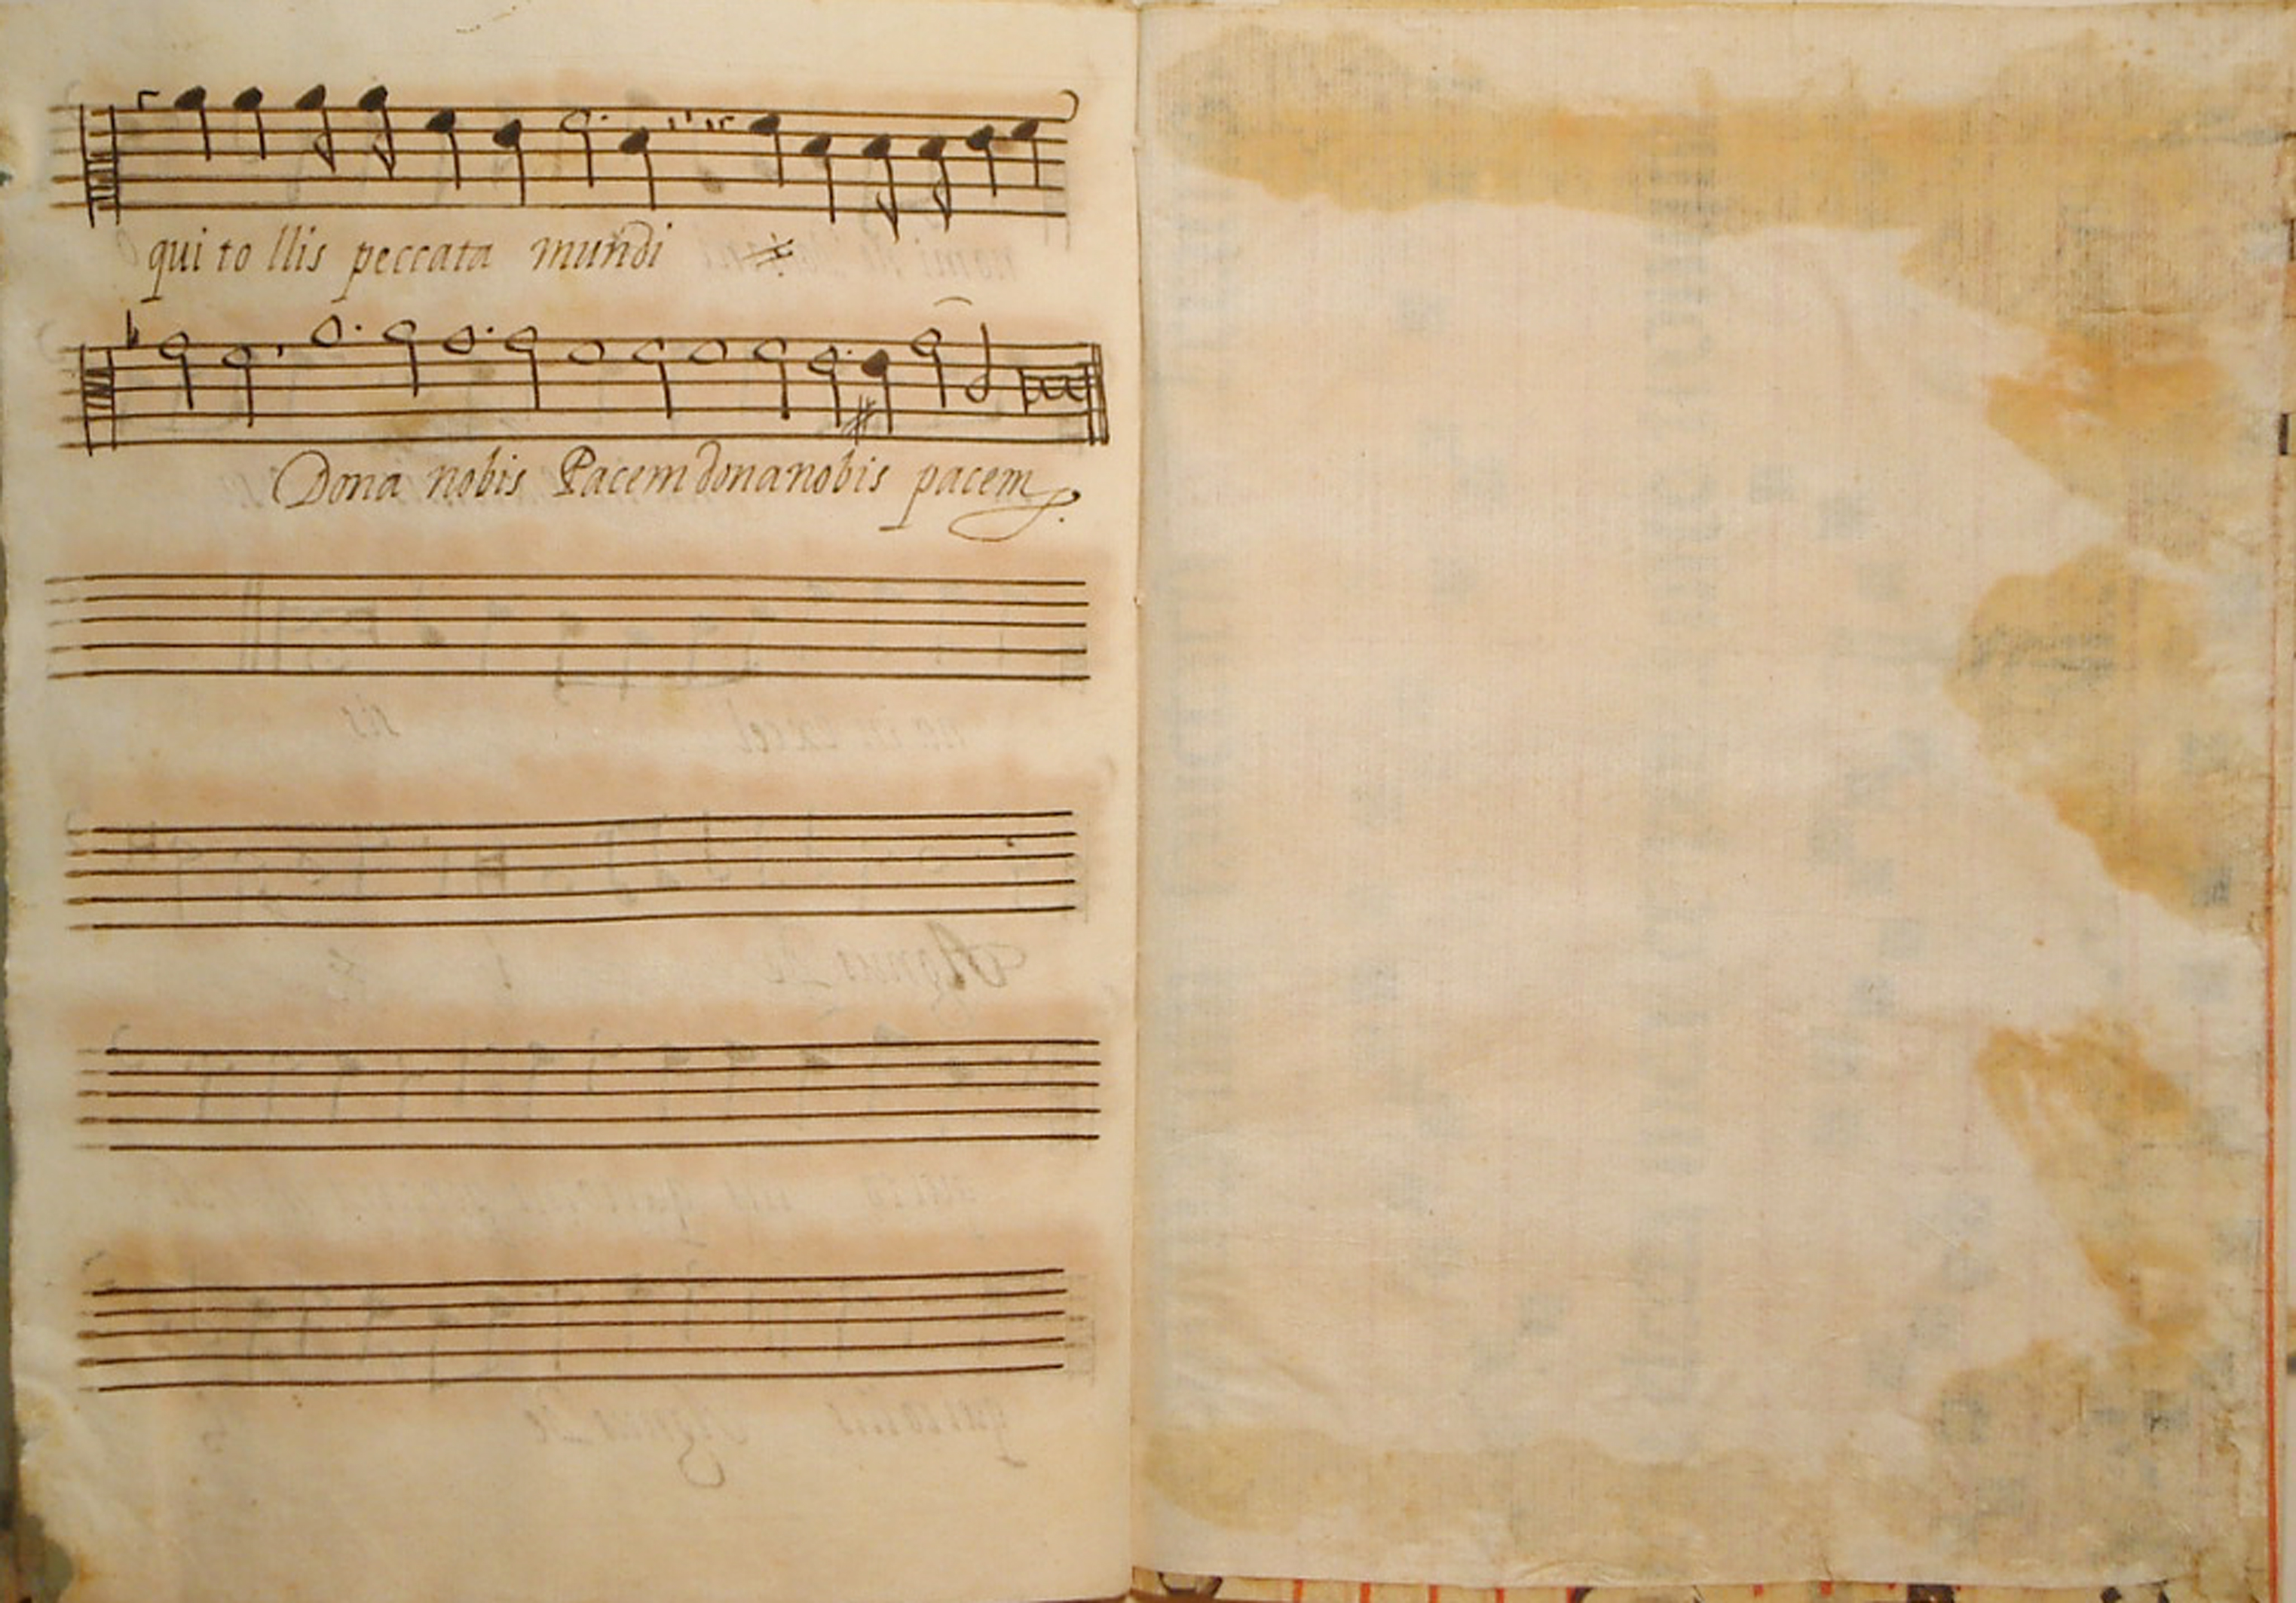 qui to llis peccata mundi
Dona nobis Pacem dona nobis pacem